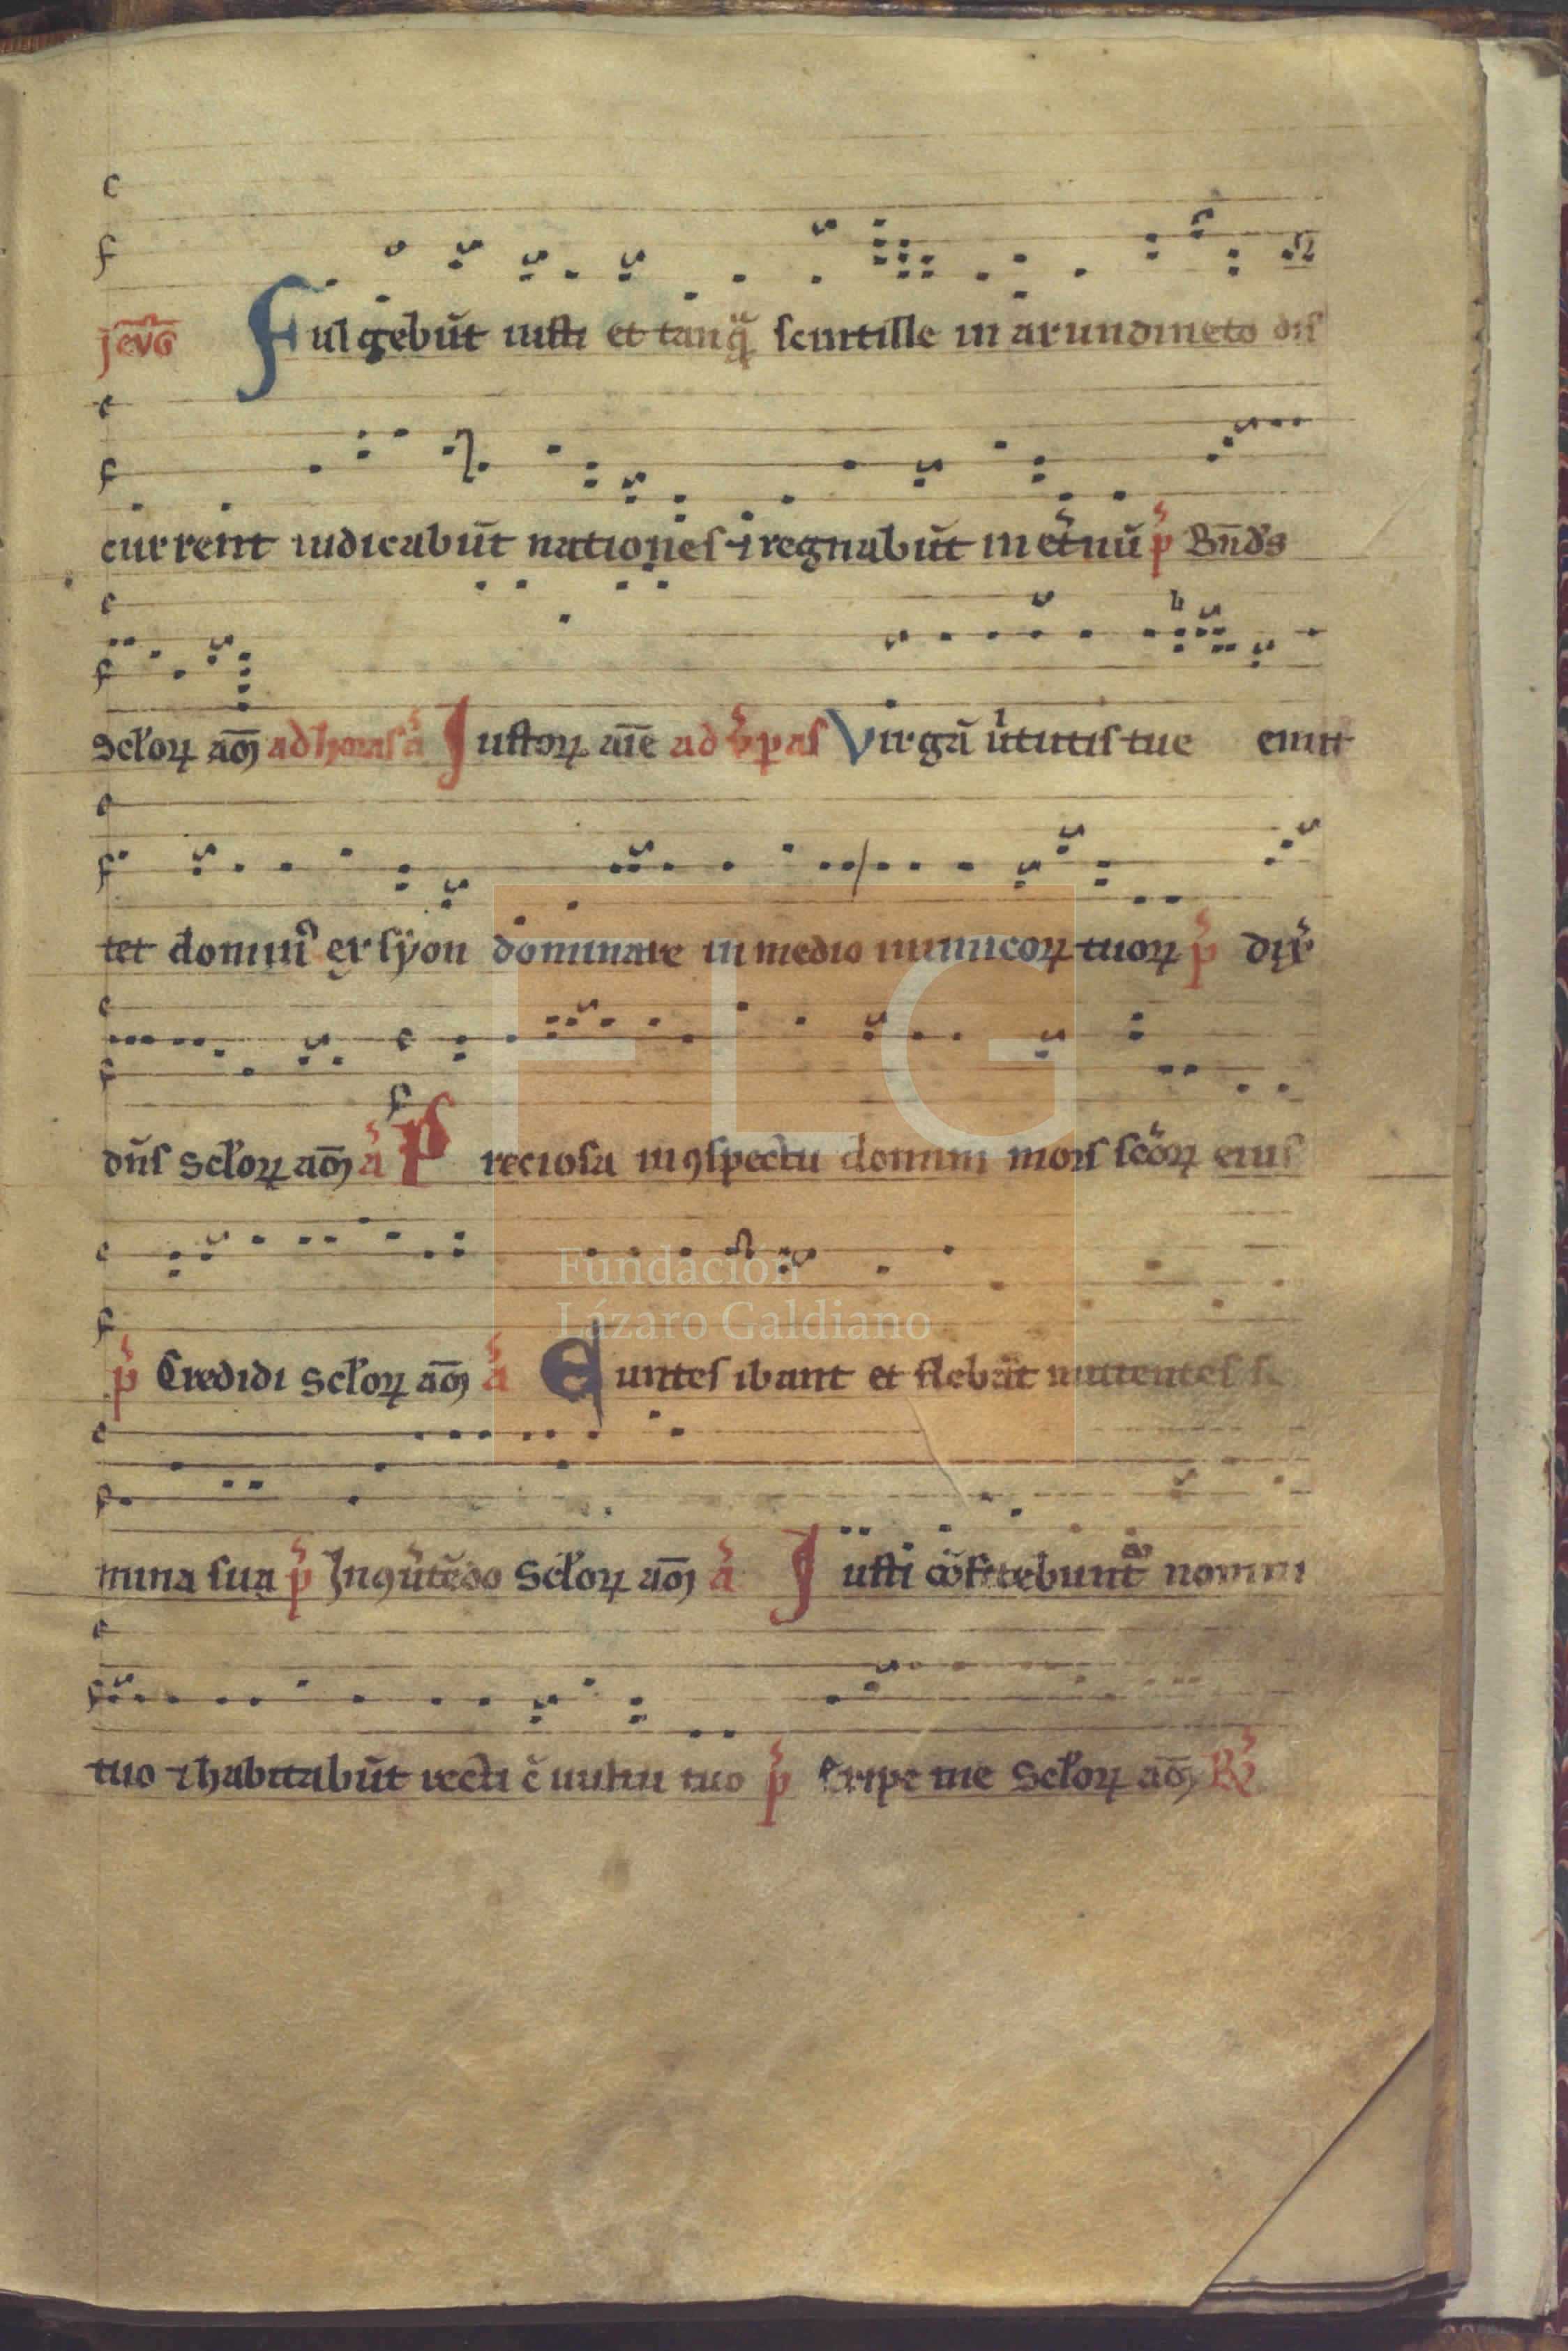 c
f
jn evg̅ Fulgebūt iusti et tanq̃ scintille in arundineto dis
c
f
current iudicabūt nationes ⁊ regnabūt in et̾nū p̾ Bn̄d's
c
f
Sc̃loꝝ am̄ ad horas a̾ Iustoꝝ aīe ad v̾pas Virgā ỉtutis tue emit
c
f
tet dominꝰ ex syon dominare in medio inimicoꝝ tuoꝝ p̾ dix̾
c
f
dn̄s Sc̃loꝝ am̄ a̾ Preciosa in ꝯspectu domini mors sc̃oꝝ eius
c
f
p̾ Credidi Sc̃loꝝ am̄ a̾ Euntes ibant et flebāt mittentes se
c
f
mina sua p̾ In ꝯu̾tēdo Sc̃loꝝ am̄ a̾ Iusti cōfitebunt᷑ nomini
c
f
tuo ⁊ habitabūt recti c̄ uultu tuo p̾ Eripe me Sc̃loꝝ am̄ R̾
FLG
Fundación
Lázaro Galdiano